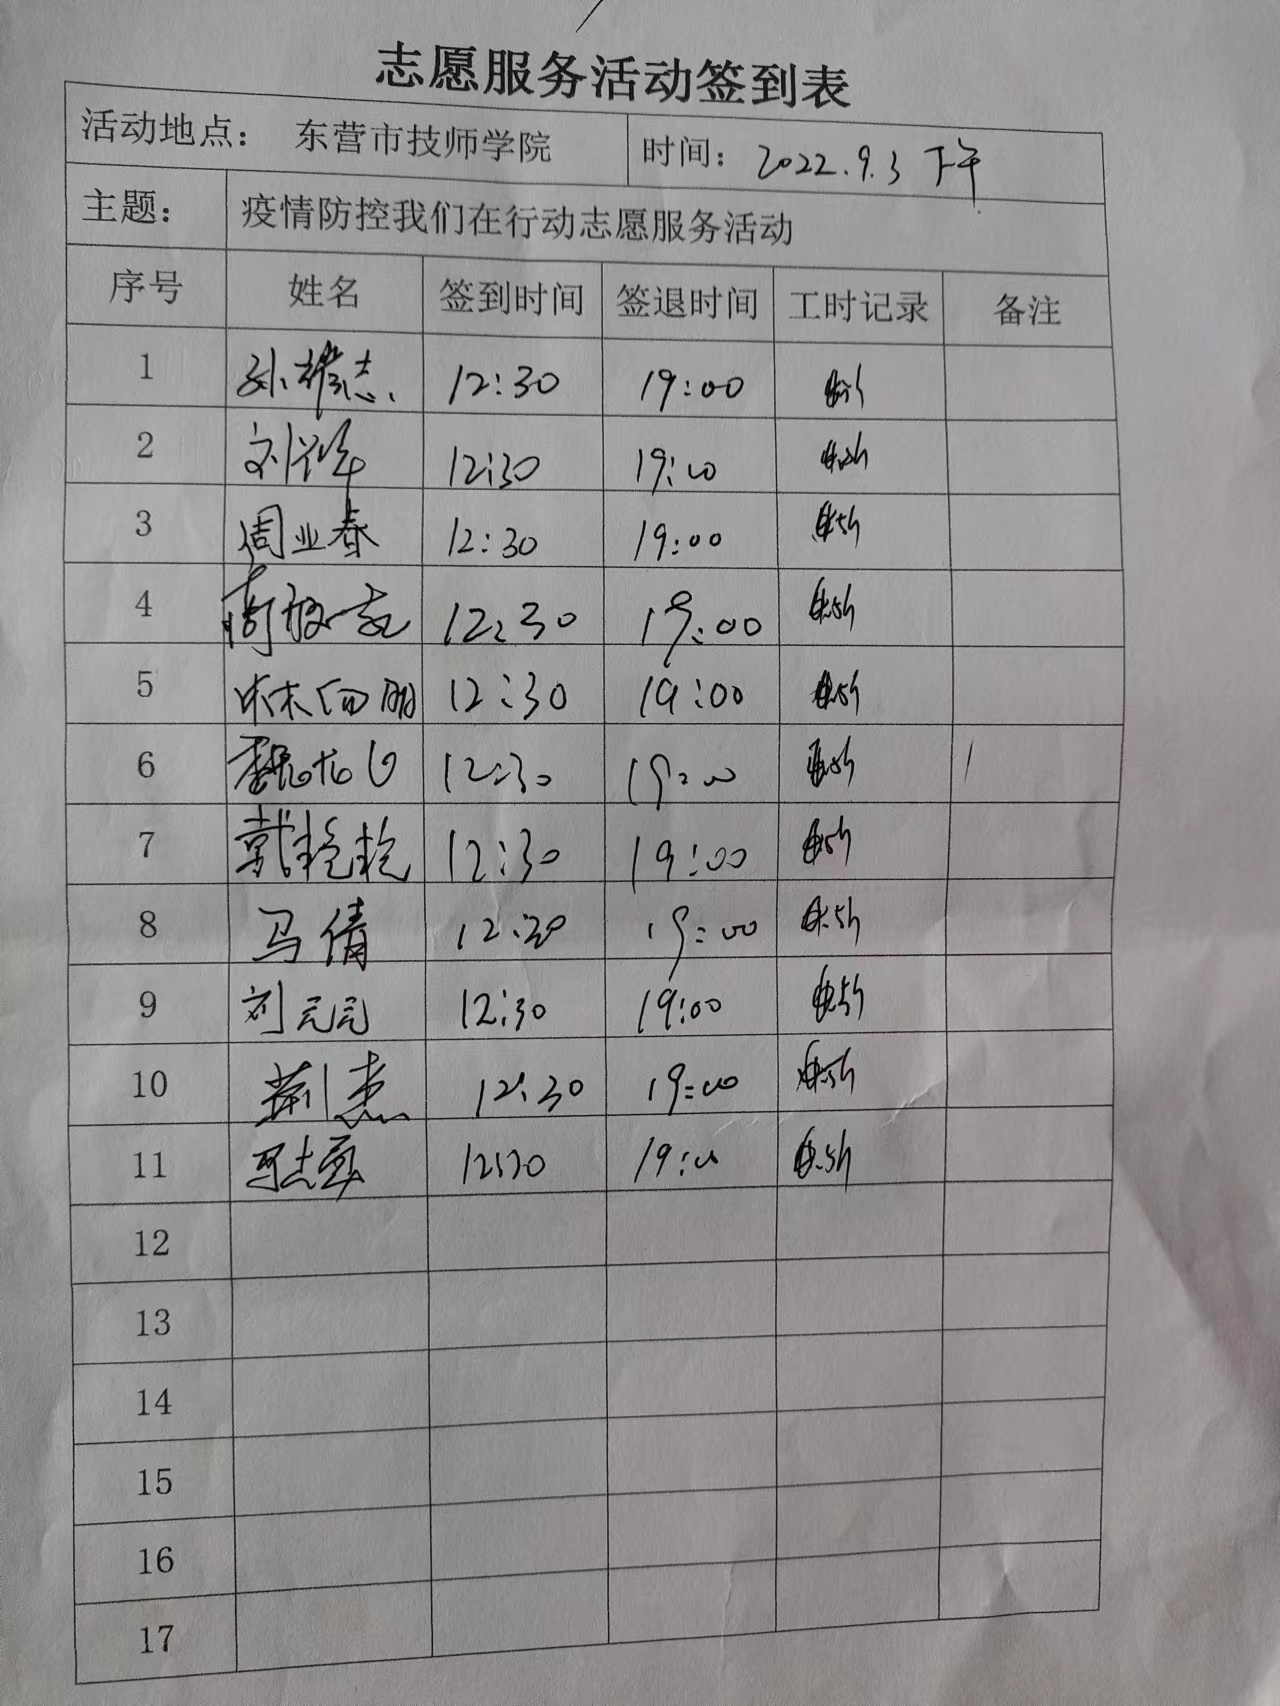 志愿服务活动签到表
活动地点： 东营市技师学院 时间：2022.9.3 下午
主题： 疫情防控我们在行动志愿服务活动
序号 姓名 签到时间 签退时间 工时记录 备注
1 孙雄志 12:30 19:00
2 12:30 19:00
3 周业春 12:30 19:00 .5h
4 12:30 19:00 .5h
5 12:30 19:00 .5h
6 12:30 19:00 .5h
7 韩艳艳 12:30 19:00 .5h
8 马倩 12:30 19:00 .5h
9 刘元元 12:30 19:00 .5h
10 荆杰 12:30 19:00 .5h
11 12:30 19:00 .5h
12
13
14
15
16
17